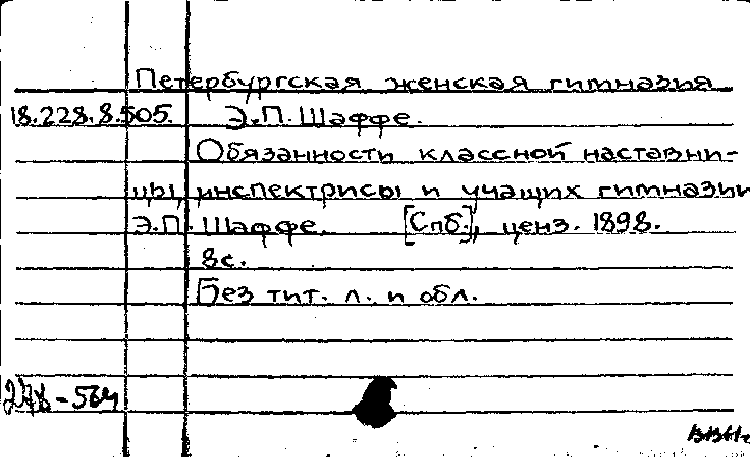 Петербургская женская гимназия
18.228.8.505. Э.П. Шаффе.
Обязанности классной наставни-
цы, инспектрисы и учащих гимназии
Э.П. Шаффе. [Спб.], ценз. 1898.
8с.
Без тит. л. и обл.
278-564